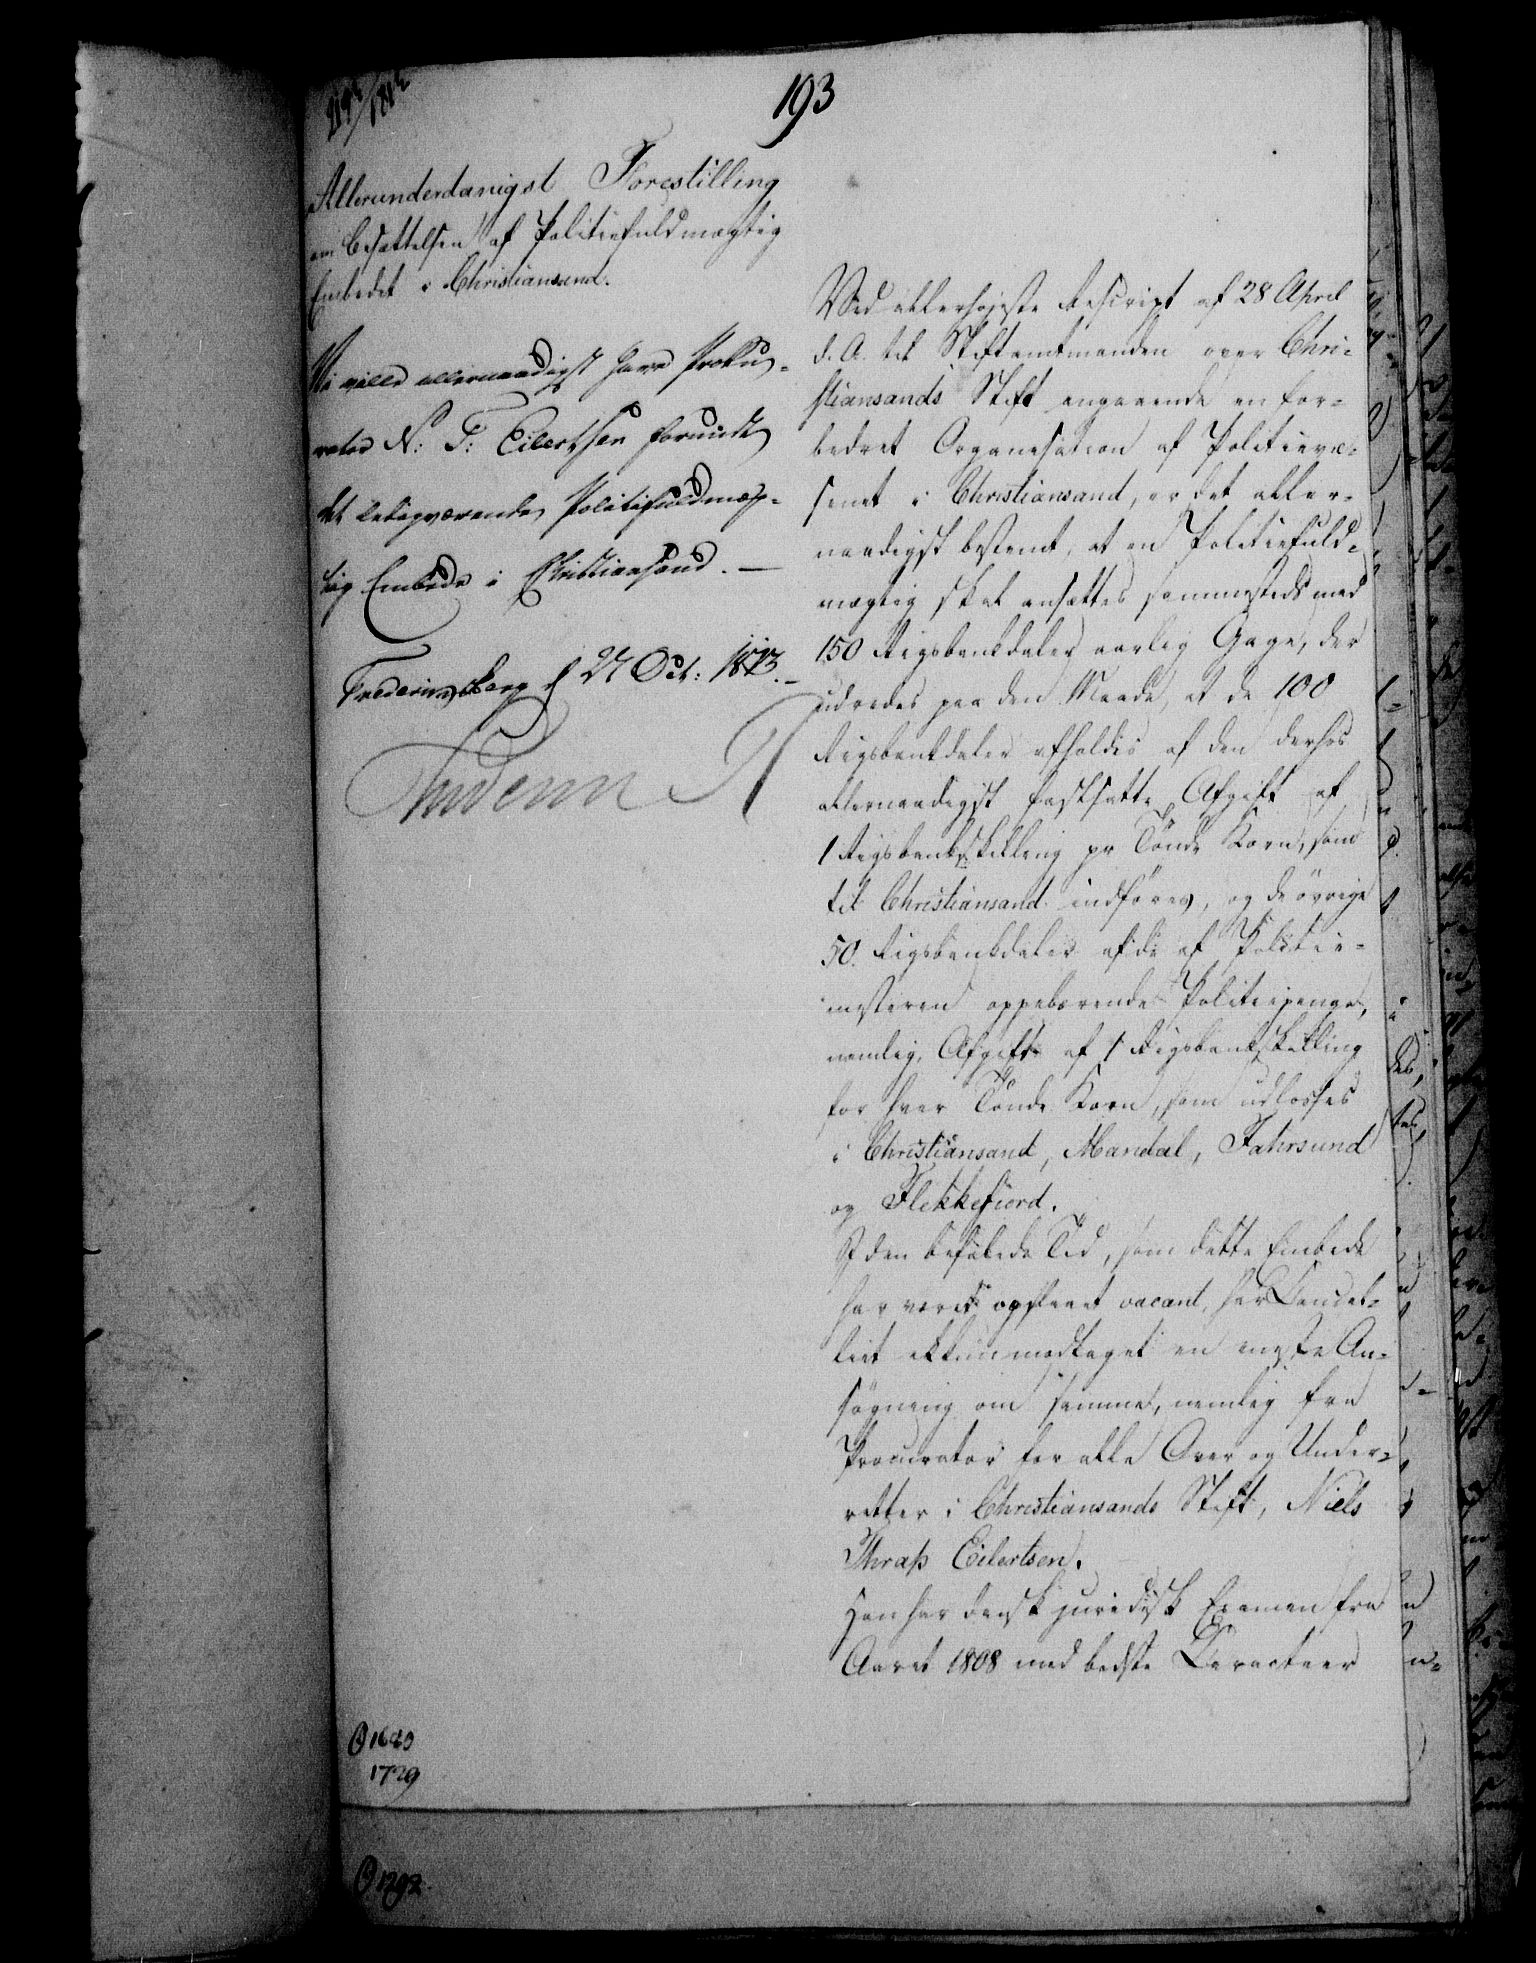 193
Allerunderdanigst Forestilling
om Besættelsen af Politiefuldmægtig
Embedet i Christiansand.
Vi ville allernaadigst have Proku-
rator N: T: Eilertsen forundt
det ledigværende Politifuldmæg-
tig Embede i Christiansand. —
Frederiksberg d 27 Oct: 1813. –
Frederik R
Ved allerhøjeste Rescript af 28 April
d. A. til Stiftamtmanden over Chri-
stiansands Stift angaaende en for-
bedret Organisation af Politievæ-
senet i Christiansand, er det aller-
naadigst bestemt, at en Politiefuld-
mægtig skal ansættes sammesteds med
150 Rigsbankdaler aarlig Gage, der
udredes paa den Maade, at de 100
Rigsbankdaler afholdes af den derhos
allernaadigst fastsatte Afgift af
1 Rigsbankskilling pr Tønde Korn, som
til Christiansand indføres, og de øvrige
50 Rigsbankdaler af de af Politie-
mesteren oppebærende Politiepenge,
nemlig Afgift af 1 Rigsbankskilling
for hver Tønde Korn, som udlosses
i Christiansand, Mandal, Fahrsund
og Flekkefiord.
I den Tid, som dette Embede
har været opslaaet vacant, har Cancel-
liet ikkun modtaget en eneste An-
søgning om samme, nemlig fra
Procurator for alle Over og Under-
retter i Christiansands Stift, Niels
Thrap Eilertsen.
Han har dansk juridisk Examen fra
Aaret 1808 med bedste Caracteer
1729